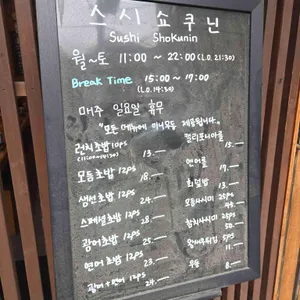 스시쇼쿠닌
Sushi Shokunin
월~토 11:00 ~ 22:00 (L.O. 21:30)
Break Time 15:00 ~ 17:00
(L.O. 14:30)
매주 일요일 휴무
"모든 메뉴에 미니우동 제공됩니다"
런치초밥 10ps 13.—
(11:00~14:30)
모듬초밥 12ps 18.—
생선초밥 12ps 24.—
스페셜초밥 12ps 28.—
광어초밥 12ps 25.—
연어초밥 12ps 23.—
광어+연어 12ps 24.—
캘리포니아롤 15.—
연어롤 17.—
회덮밥 13.—
모듬사시미 25ps 44.—
참치사시미 25ps 50.—
왕새우튀김 5ps 11.—
우동 8.—